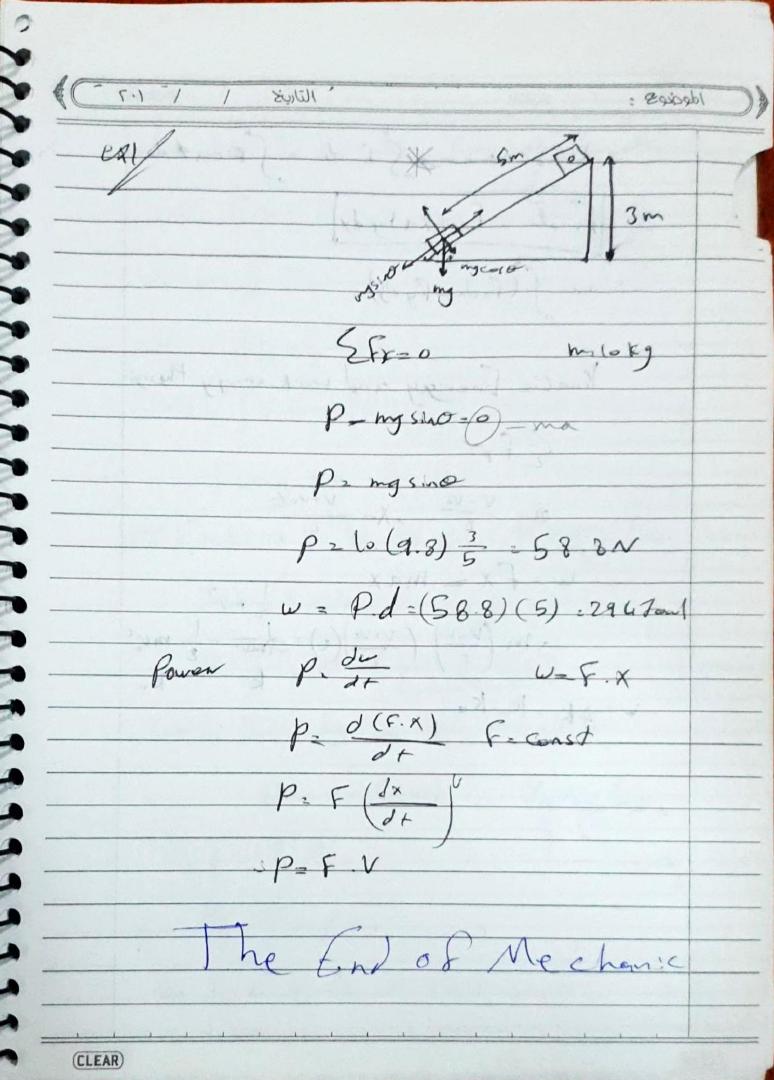 الموضوع : التاريخ / / ٢٠١
EX1
5m
3m
mg sinθ mg cosθ
mg
ΣFx = 0 m=10kg
P - mg sinθ = 0 = ma
P = mg sinθ
P = 10 (9.8) 3/5 = 58.8N
w = P.d = (58.8)(5) = 294 Joul
Power P = dw/dt w = F.x
P = d(F.x)/dt F = const
P = F (dx/dt) v
∴ P = F.V
The End of Mechanic
CLEAR